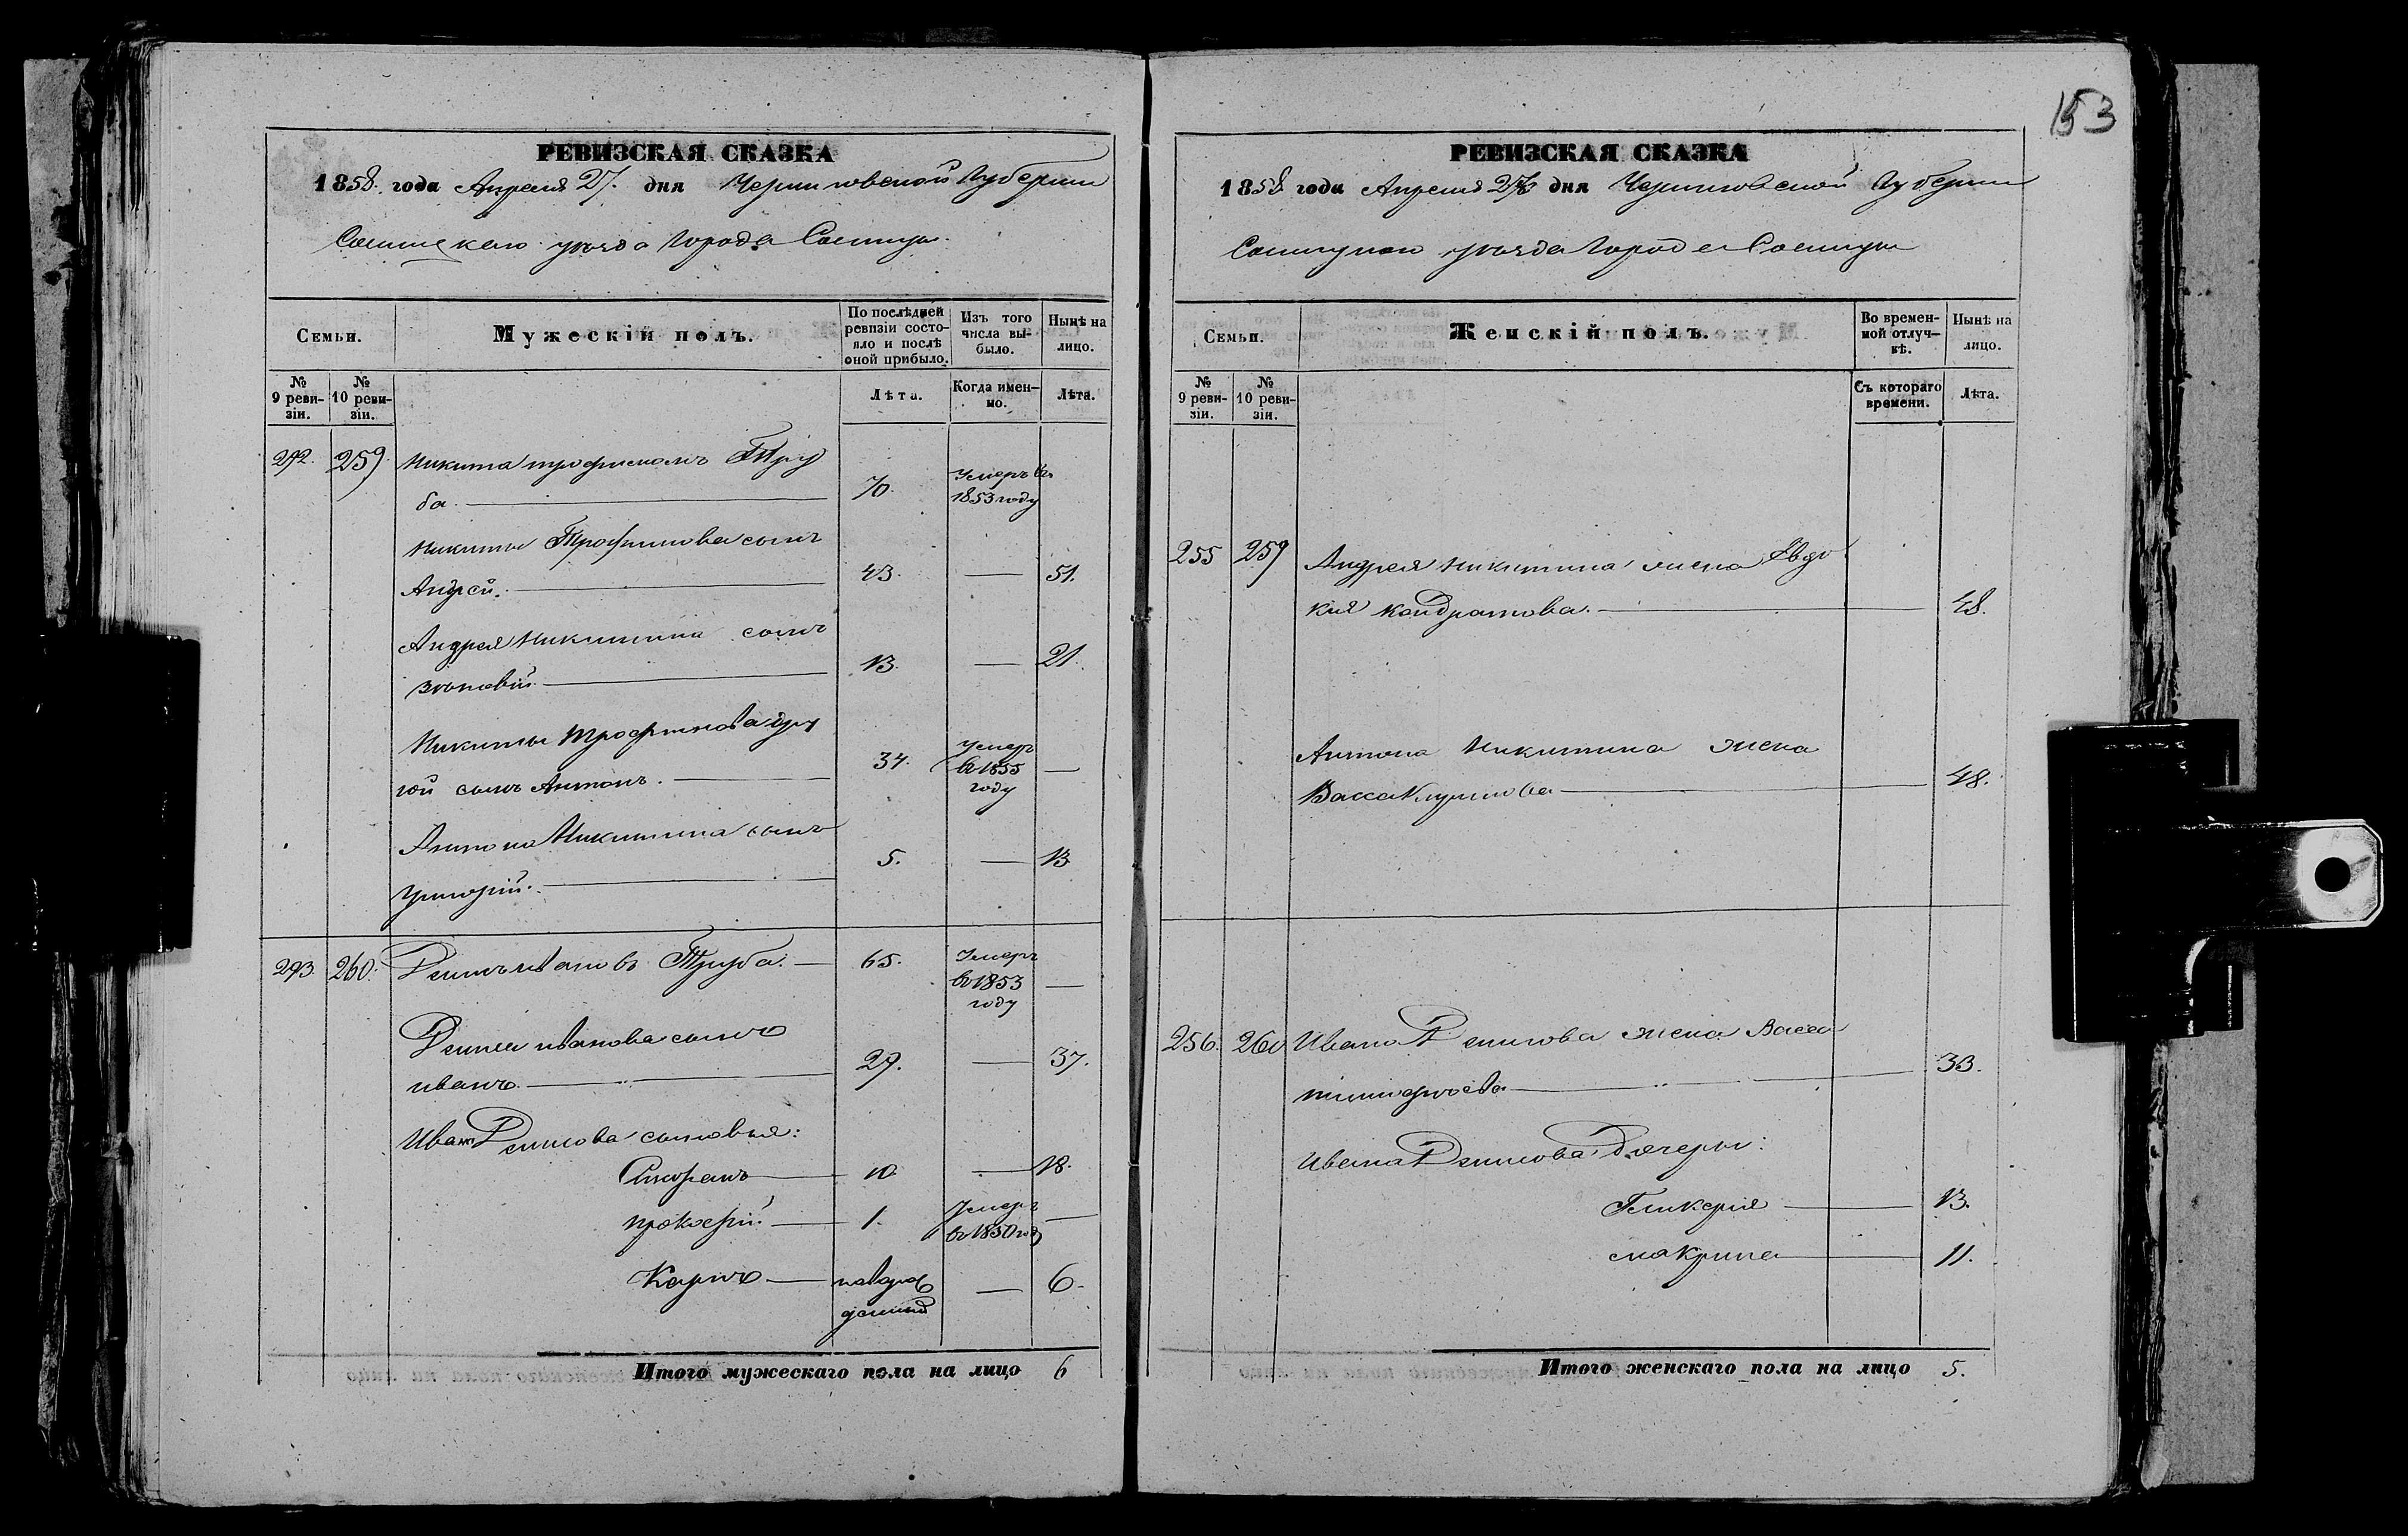 153
РЕВИЗСКАЯ СКАЗКА
1858. года Апреля 27. дня Черниговской Губернии
Сосницкаго уезда Города Сосницы.
Семьи.
Мужескій полъ.
По послѣдней ревизіи состояло и послѣ оной прибыло.
Изъ того числа выбыло.
Нынѣ на лицо.
№ 9 ревизіи.
№ 10 ревизіи.
Лѣта.
Когда именно.
Лѣта.
292. 259. Никита трофимовъ Тру
ба. 70. Умеръ въ 1853 году
Никиты Трофимова сынъ
Андрей. 43. — 51.
Андрея Никитина сынъ
13. — 21.
Никиты Трофимова дру
гой сынъ Антонъ. 34. Умеръ въ 1855 году —
Антона Никитина сынъ
Григорій. 5. — 13
293. 260. Денисъ ивановъ Труба. — 65. Умеръ въ 1853 году —
Дениса иванова сынъ
иванъ. 29. — 37.
Ивана Денисова сыновья:
10. — 18.
прокофій. — 1. Умеръ въ 1850 году —
Карпъ — новорожденный — 6.
Итого мужескаго пола на лицо 6
РЕВИЗСКАЯ СКАЗКА
1858 года Апреля 27 дня Черниговской Губернии
Сосницкаго уезда Города Сосницы
Семьи.
Женскій полъ.
Во временной отлучкѣ.
Нынѣ на лицо.
№ 9 ревизіи.
№ 10 ревизіи.
Съ котораго времени.
Лѣта.
255 259 Андрея Никитина жена Евдо
кия Кондратова. — 48.
Антона Никитина жена
Васса — 48.
256. 260 Ивана Денисова жена Васса
тимофеева — 33.
Ивана Денисова дочери:
Гликерия — 13.
макрина — 11.
Итого женскаго пола на лицо 5.